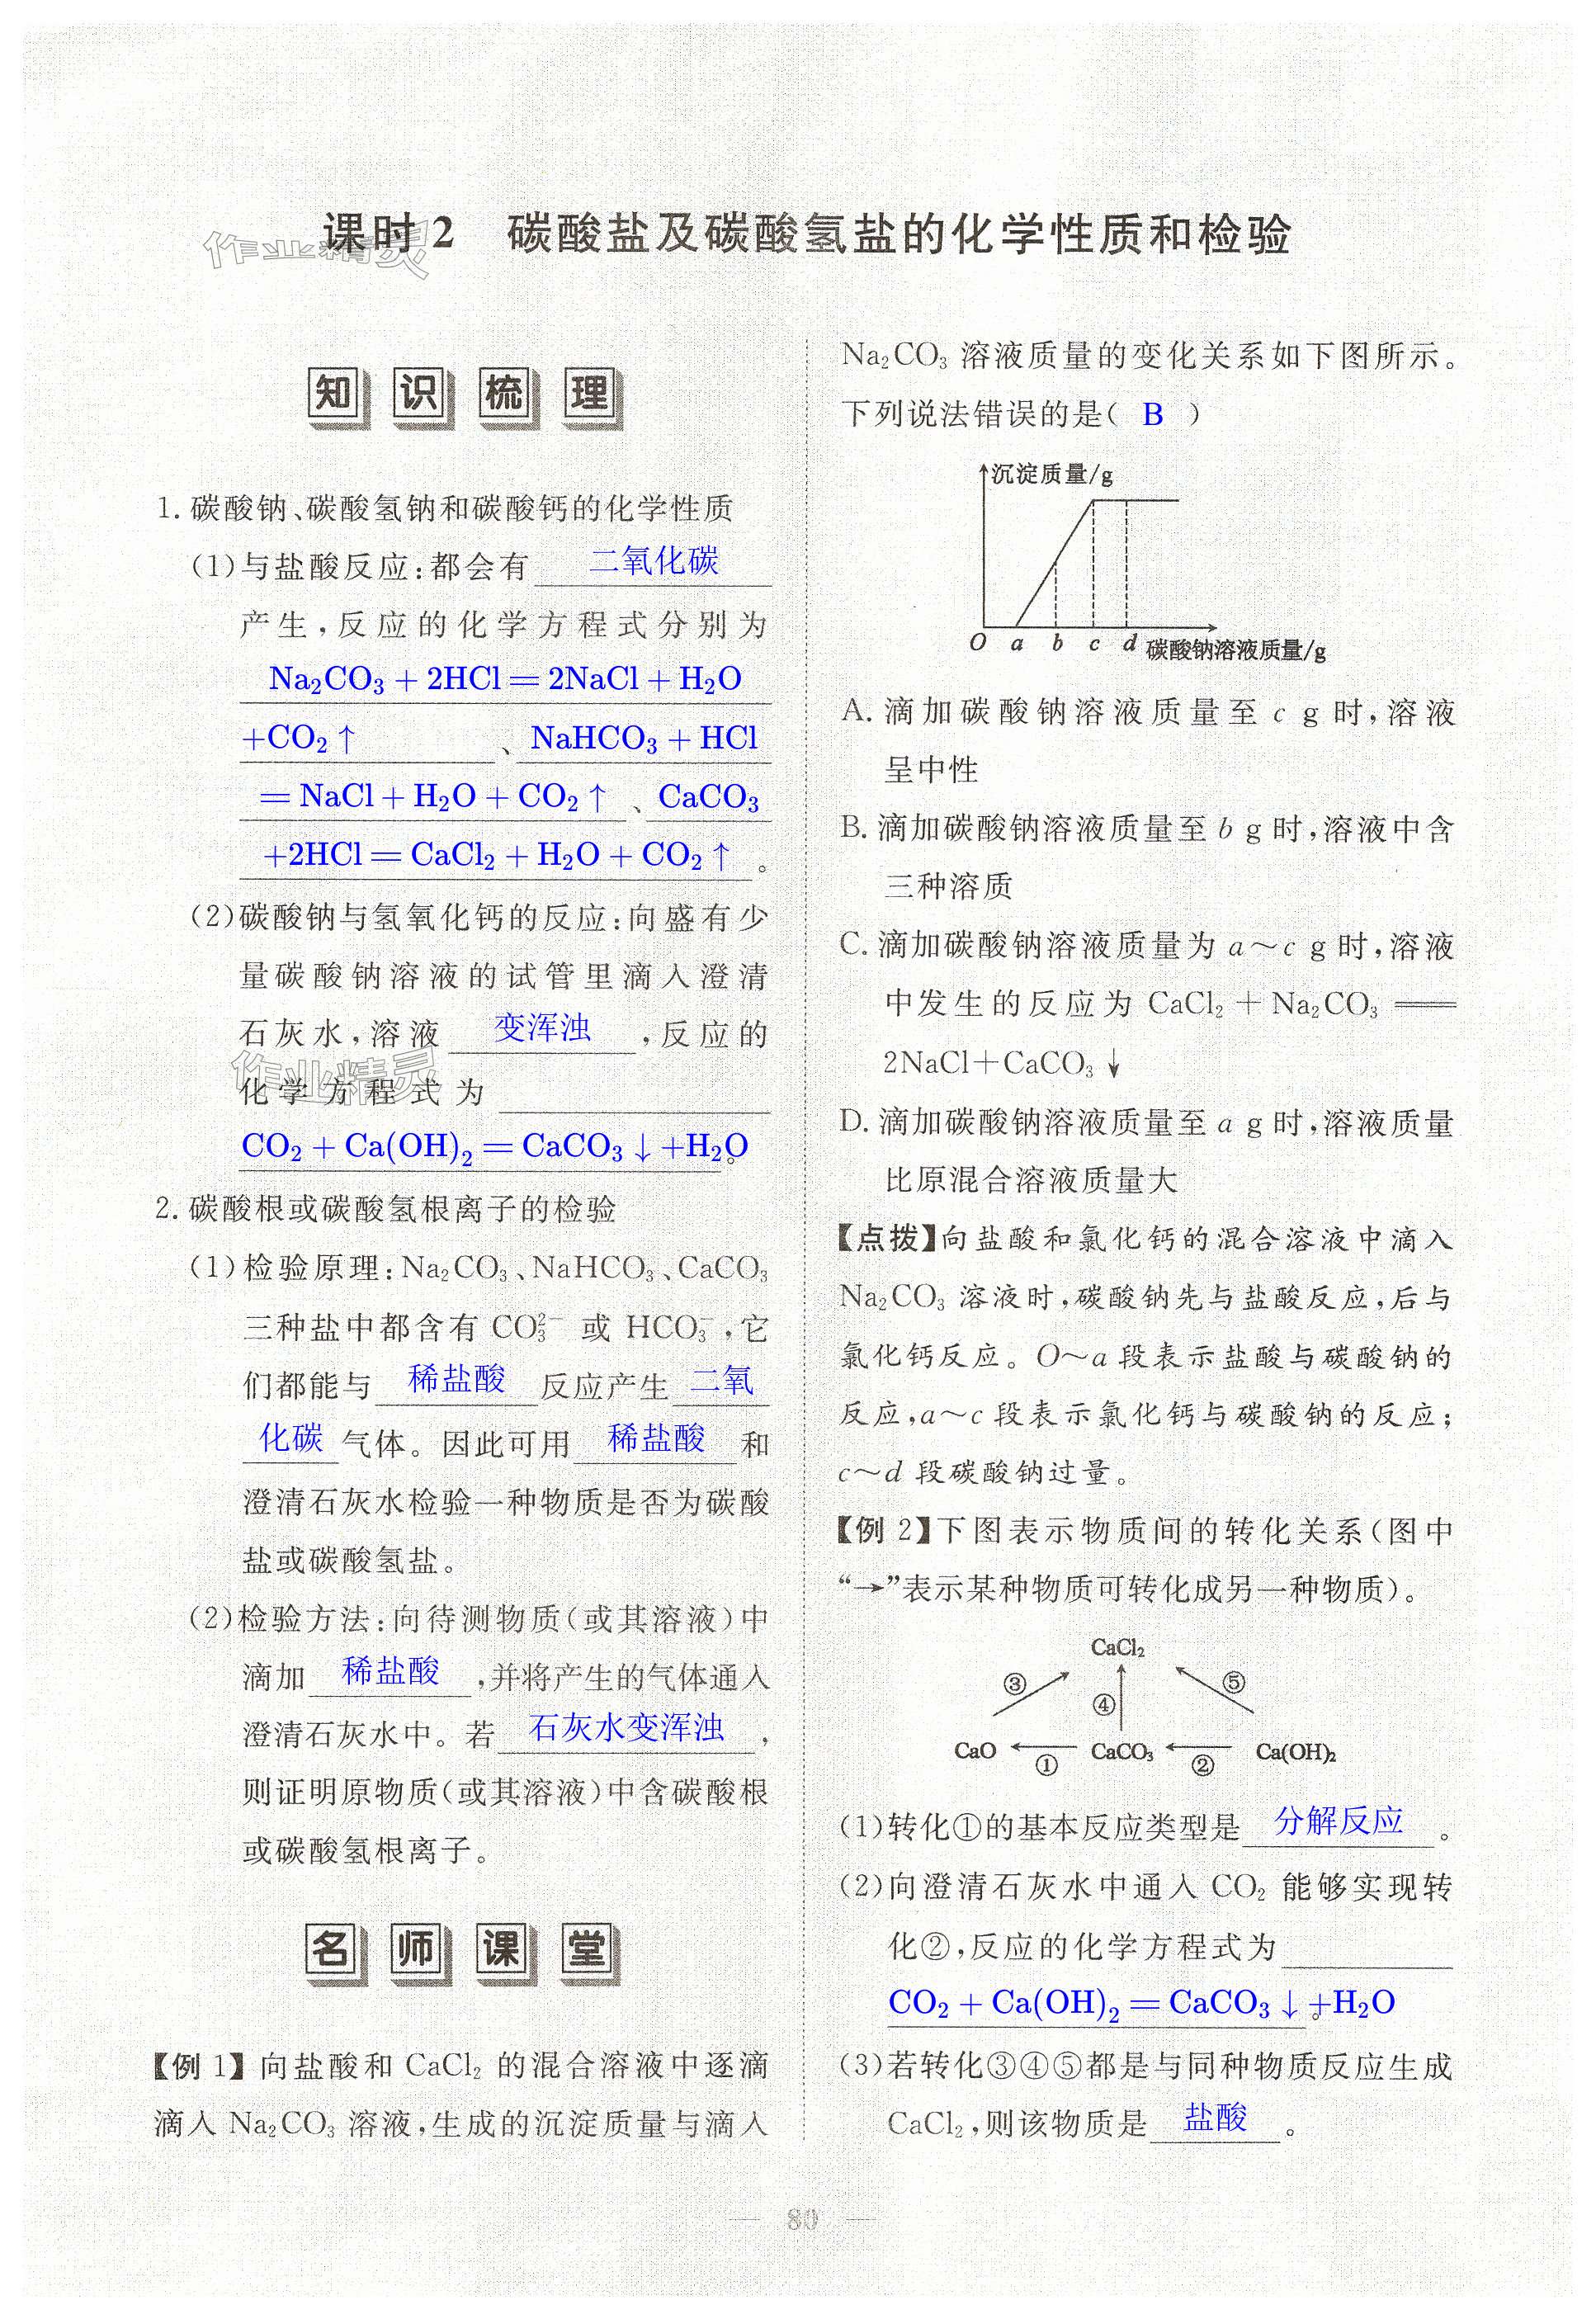 课时2 碳酸盐及碳酸氢盐的化学性质和检验
作业精灵
知识梳理
1. 碳酸钠、碳酸氢钠和碳酸钙的化学性质
(1)与盐酸反应:都会有 二氧化碳
产生,反应的化学方程式分别为
Na₂CO₃ + 2HCl = 2NaCl + H₂O
+CO₂↑ 、 NaHCO₃ + HCl
= NaCl + H₂O + CO₂↑ 、 CaCO₃
+2HCl = CaCl₂ + H₂O + CO₂↑ 。
(2)碳酸钠与氢氧化钙的反应:向盛有少
量碳酸钠溶液的试管里滴入澄清
石灰水,溶液 变浑浊 ,反应的
作业精灵
化学方程式为
CO₂ + Ca(OH)₂ = CaCO₃↓+H₂O 。
2. 碳酸根或碳酸氢根离子的检验
(1)检验原理:Na₂CO₃、NaHCO₃、CaCO₃
三种盐中都含有 CO₃²⁻ 或 HCO₃⁻,它
们都能与 稀盐酸 反应产生 二氧
化碳 气体。因此可用 稀盐酸 和
澄清石灰水检验一种物质是否为碳酸
盐或碳酸氢盐。
(2)检验方法:向待测物质(或其溶液)中
滴加 稀盐酸 ,并将产生的气体通入
澄清石灰水中。若 石灰水变浑浊 ,
则证明原物质(或其溶液)中含碳酸根
或碳酸氢根离子。
名师课堂
【例 1】 向盐酸和 CaCl₂ 的混合溶液中逐滴
滴入 Na₂CO₃ 溶液,生成的沉淀质量与滴入
Na₂CO₃ 溶液质量的变化关系如下图所示。
下列说法错误的是( B )
沉淀质量/g
O a b c d 碳酸钠溶液质量/g
A. 滴加碳酸钠溶液质量至 c g 时,溶液
呈中性
B. 滴加碳酸钠溶液质量至 b g 时,溶液中含
三种溶质
C. 滴加碳酸钠溶液质量为 a～c g 时,溶液
中发生的反应为 CaCl₂ + Na₂CO₃ ══
2NaCl+CaCO₃↓
D. 滴加碳酸钠溶液质量至 a g 时,溶液质量
比原混合溶液质量大
【点拨】向盐酸和氯化钙的混合溶液中滴入
Na₂CO₃ 溶液时,碳酸钠先与盐酸反应,后与
氯化钙反应。O～a 段表示盐酸与碳酸钠的
反应,a～c 段表示氯化钙与碳酸钠的反应;
c～d 段碳酸钠过量。
【例 2】下图表示物质间的转化关系(图中
“→”表示某种物质可转化成另一种物质)。
CaCl₂
③ ④ ⑤
CaO ① CaCO₃ ② Ca(OH)₂
(1)转化①的基本反应类型是 分解反应 。
(2)向澄清石灰水中通入 CO₂ 能够实现转
化②,反应的化学方程式为
CO₂ + Ca(OH)₂ = CaCO₃↓+H₂O 。
(3)若转化③④⑤都是与同种物质反应生成
CaCl₂,则该物质是 盐酸 。
— 80 —